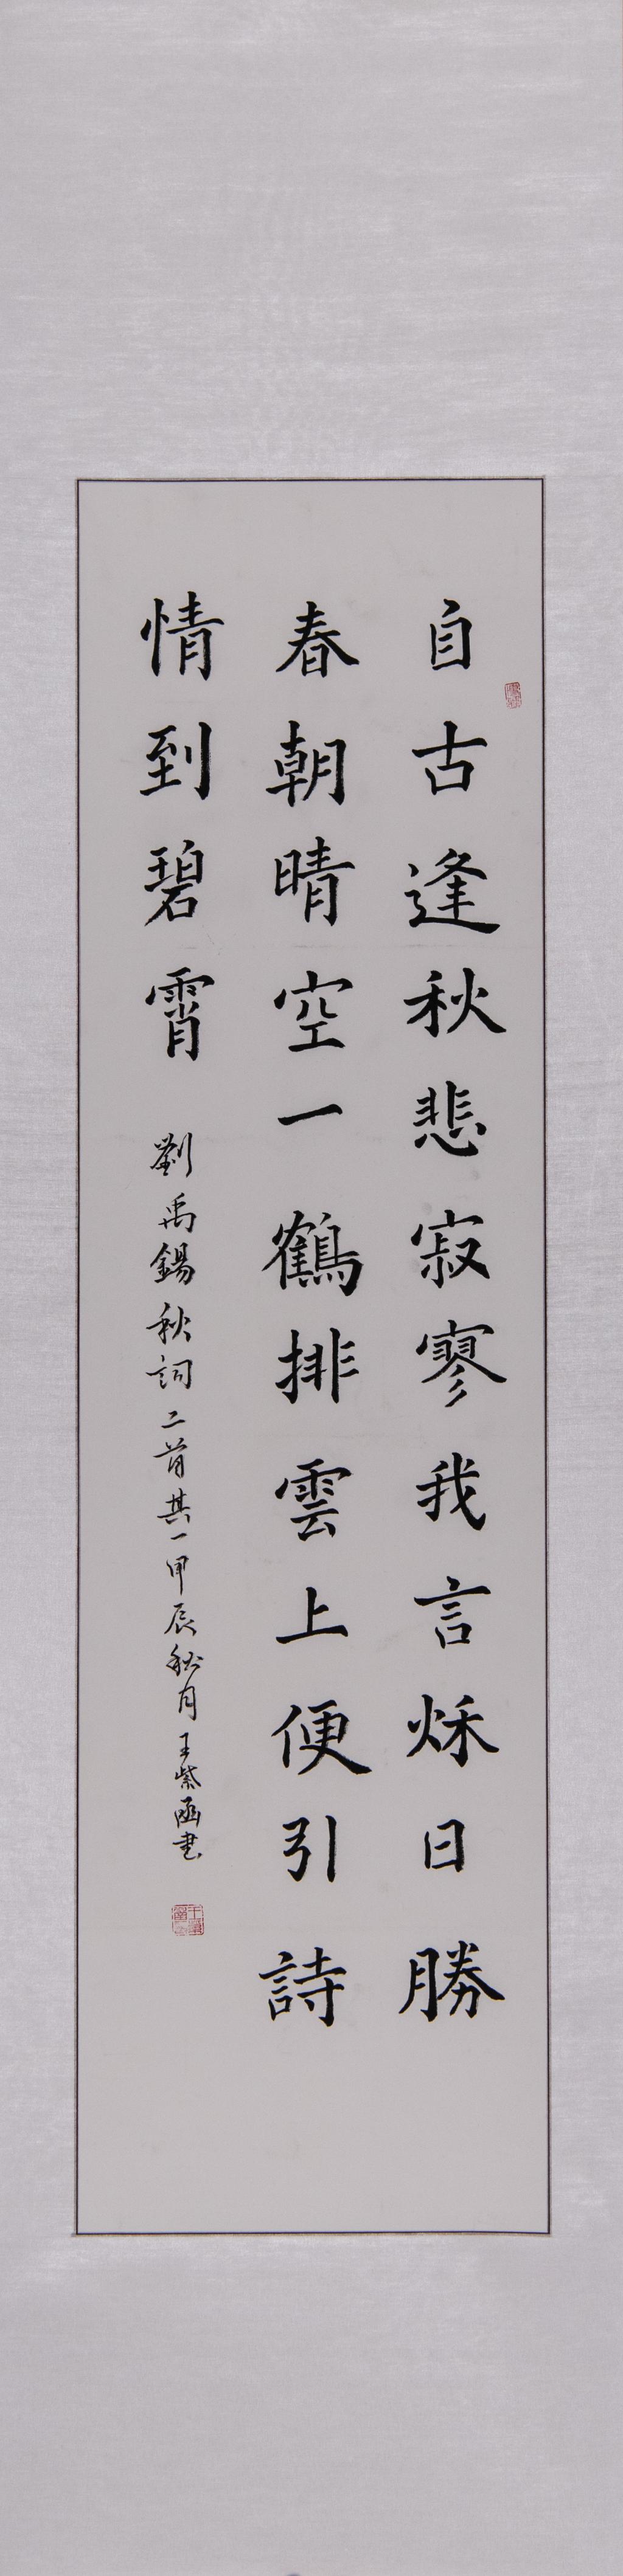 自古逢秋悲寂寥我言秌日勝
春朝晴空一鶴排雲上便引詩
情到碧霄
劉禹錫秋詞二首其一甲辰秋月王紫函書